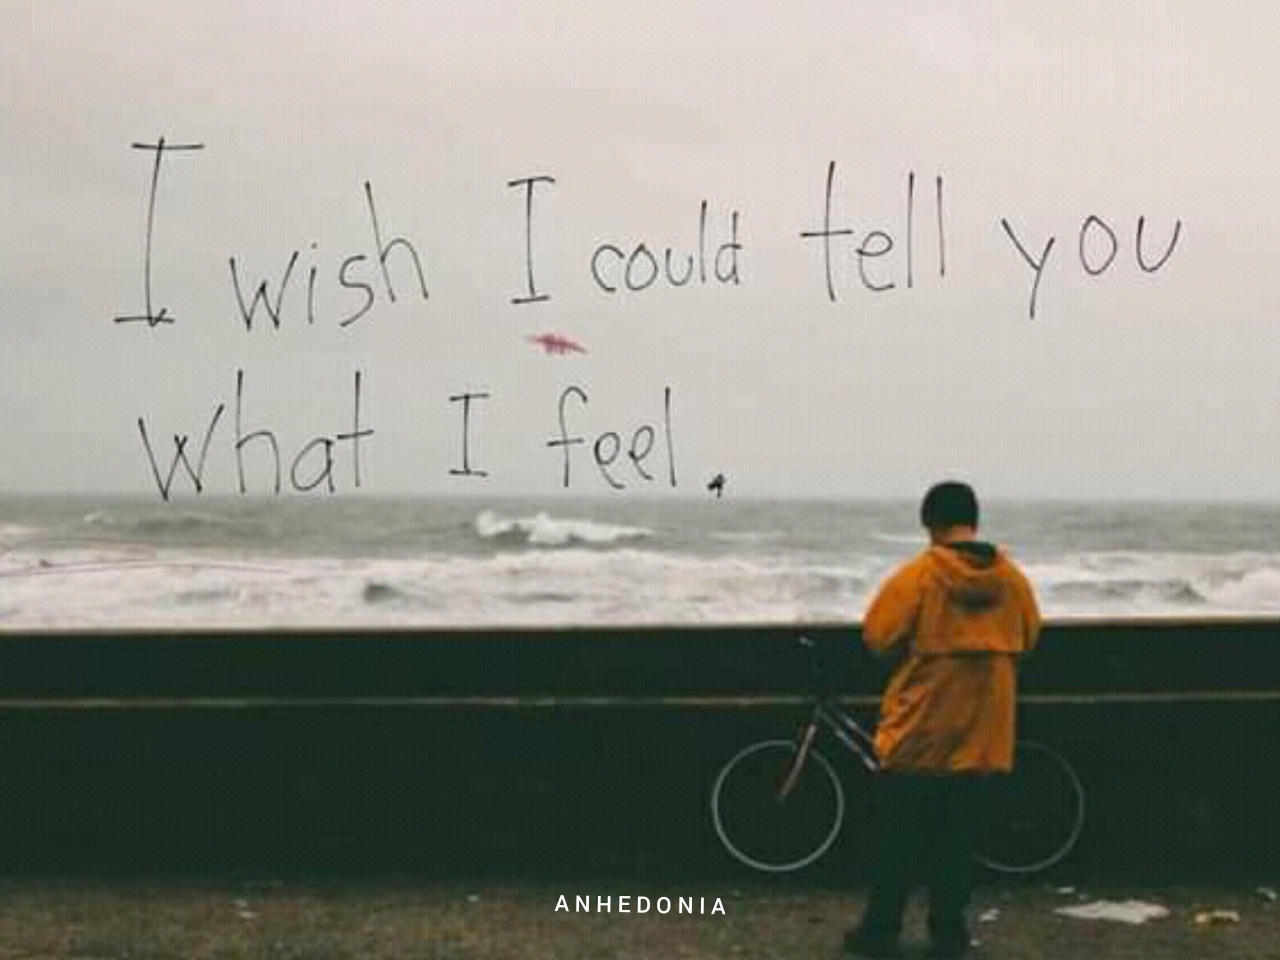 I wish I could tell you
what I feel.
ANHEDONIA